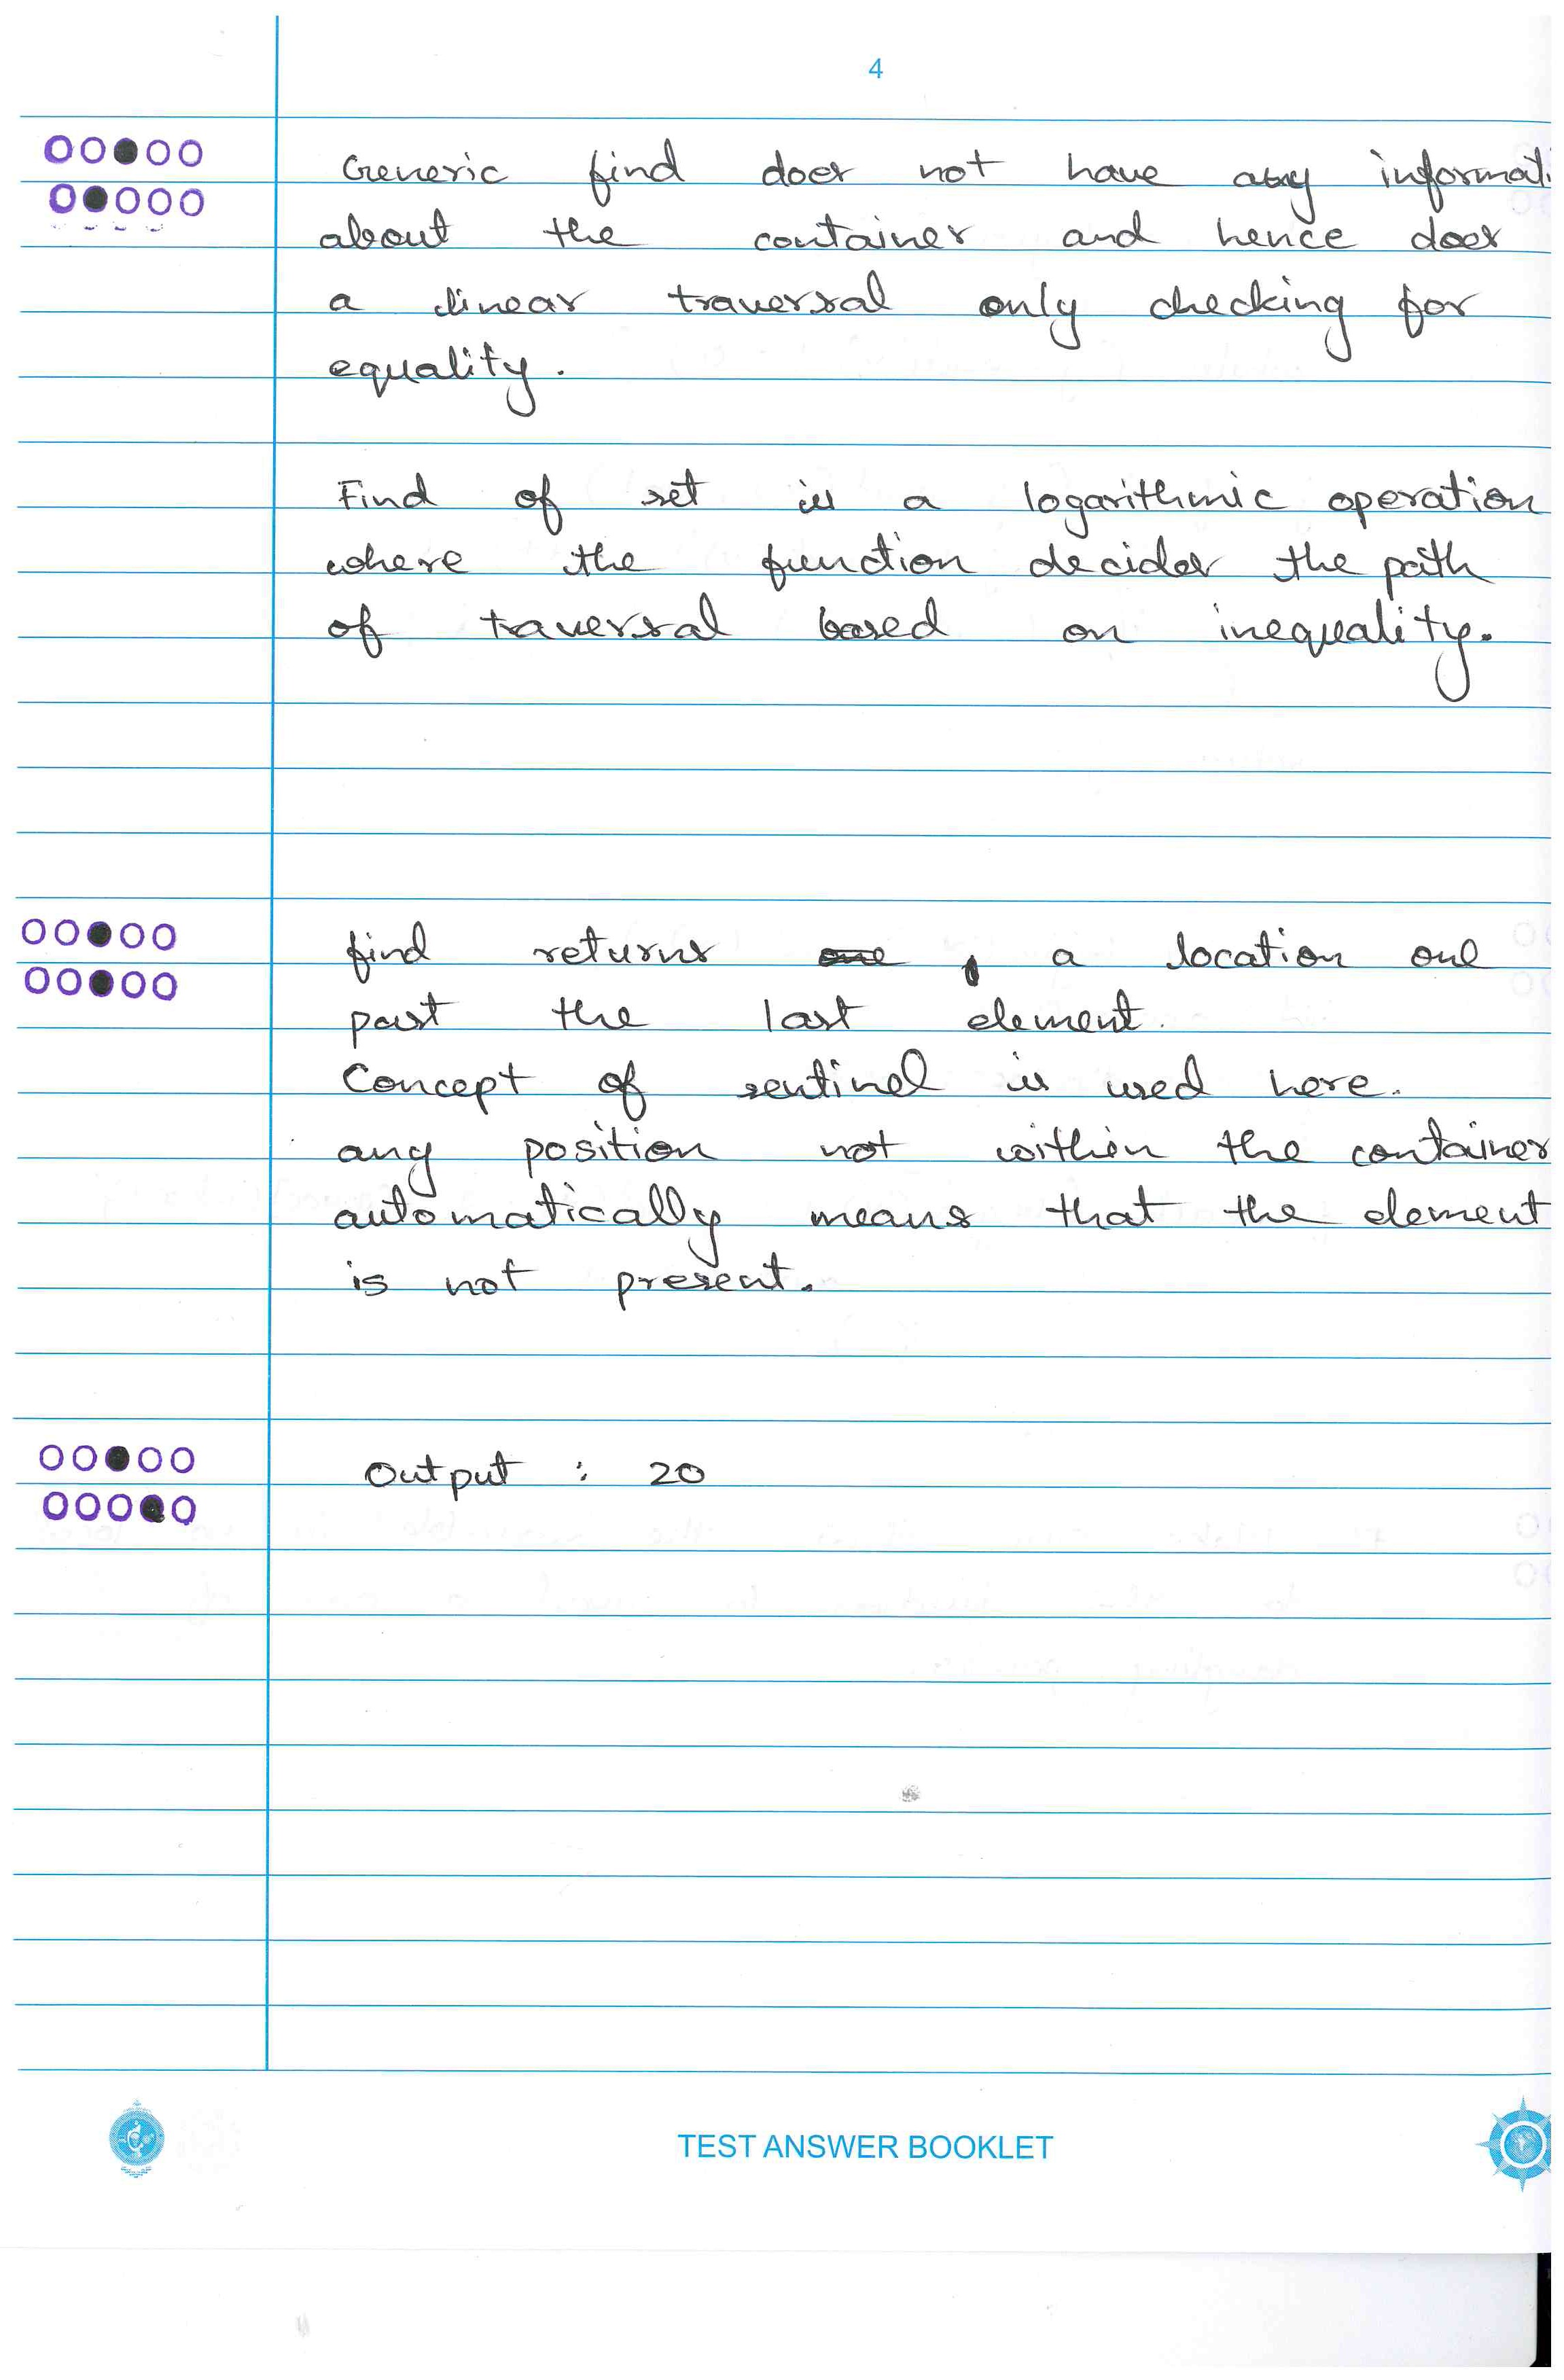 4
Generic find does not have any informati
about the container and hence does
a linear traversal only checking for
equality.
Find of set is a logarithmic operation
where the function decides the path
of traversal based on inequality.
find returns one a location one
past the last element.
Concept of sentinel is used here.
any position not within the container
automatically means that the element
is not present.
Output : 20
TEST ANSWER BOOKLET